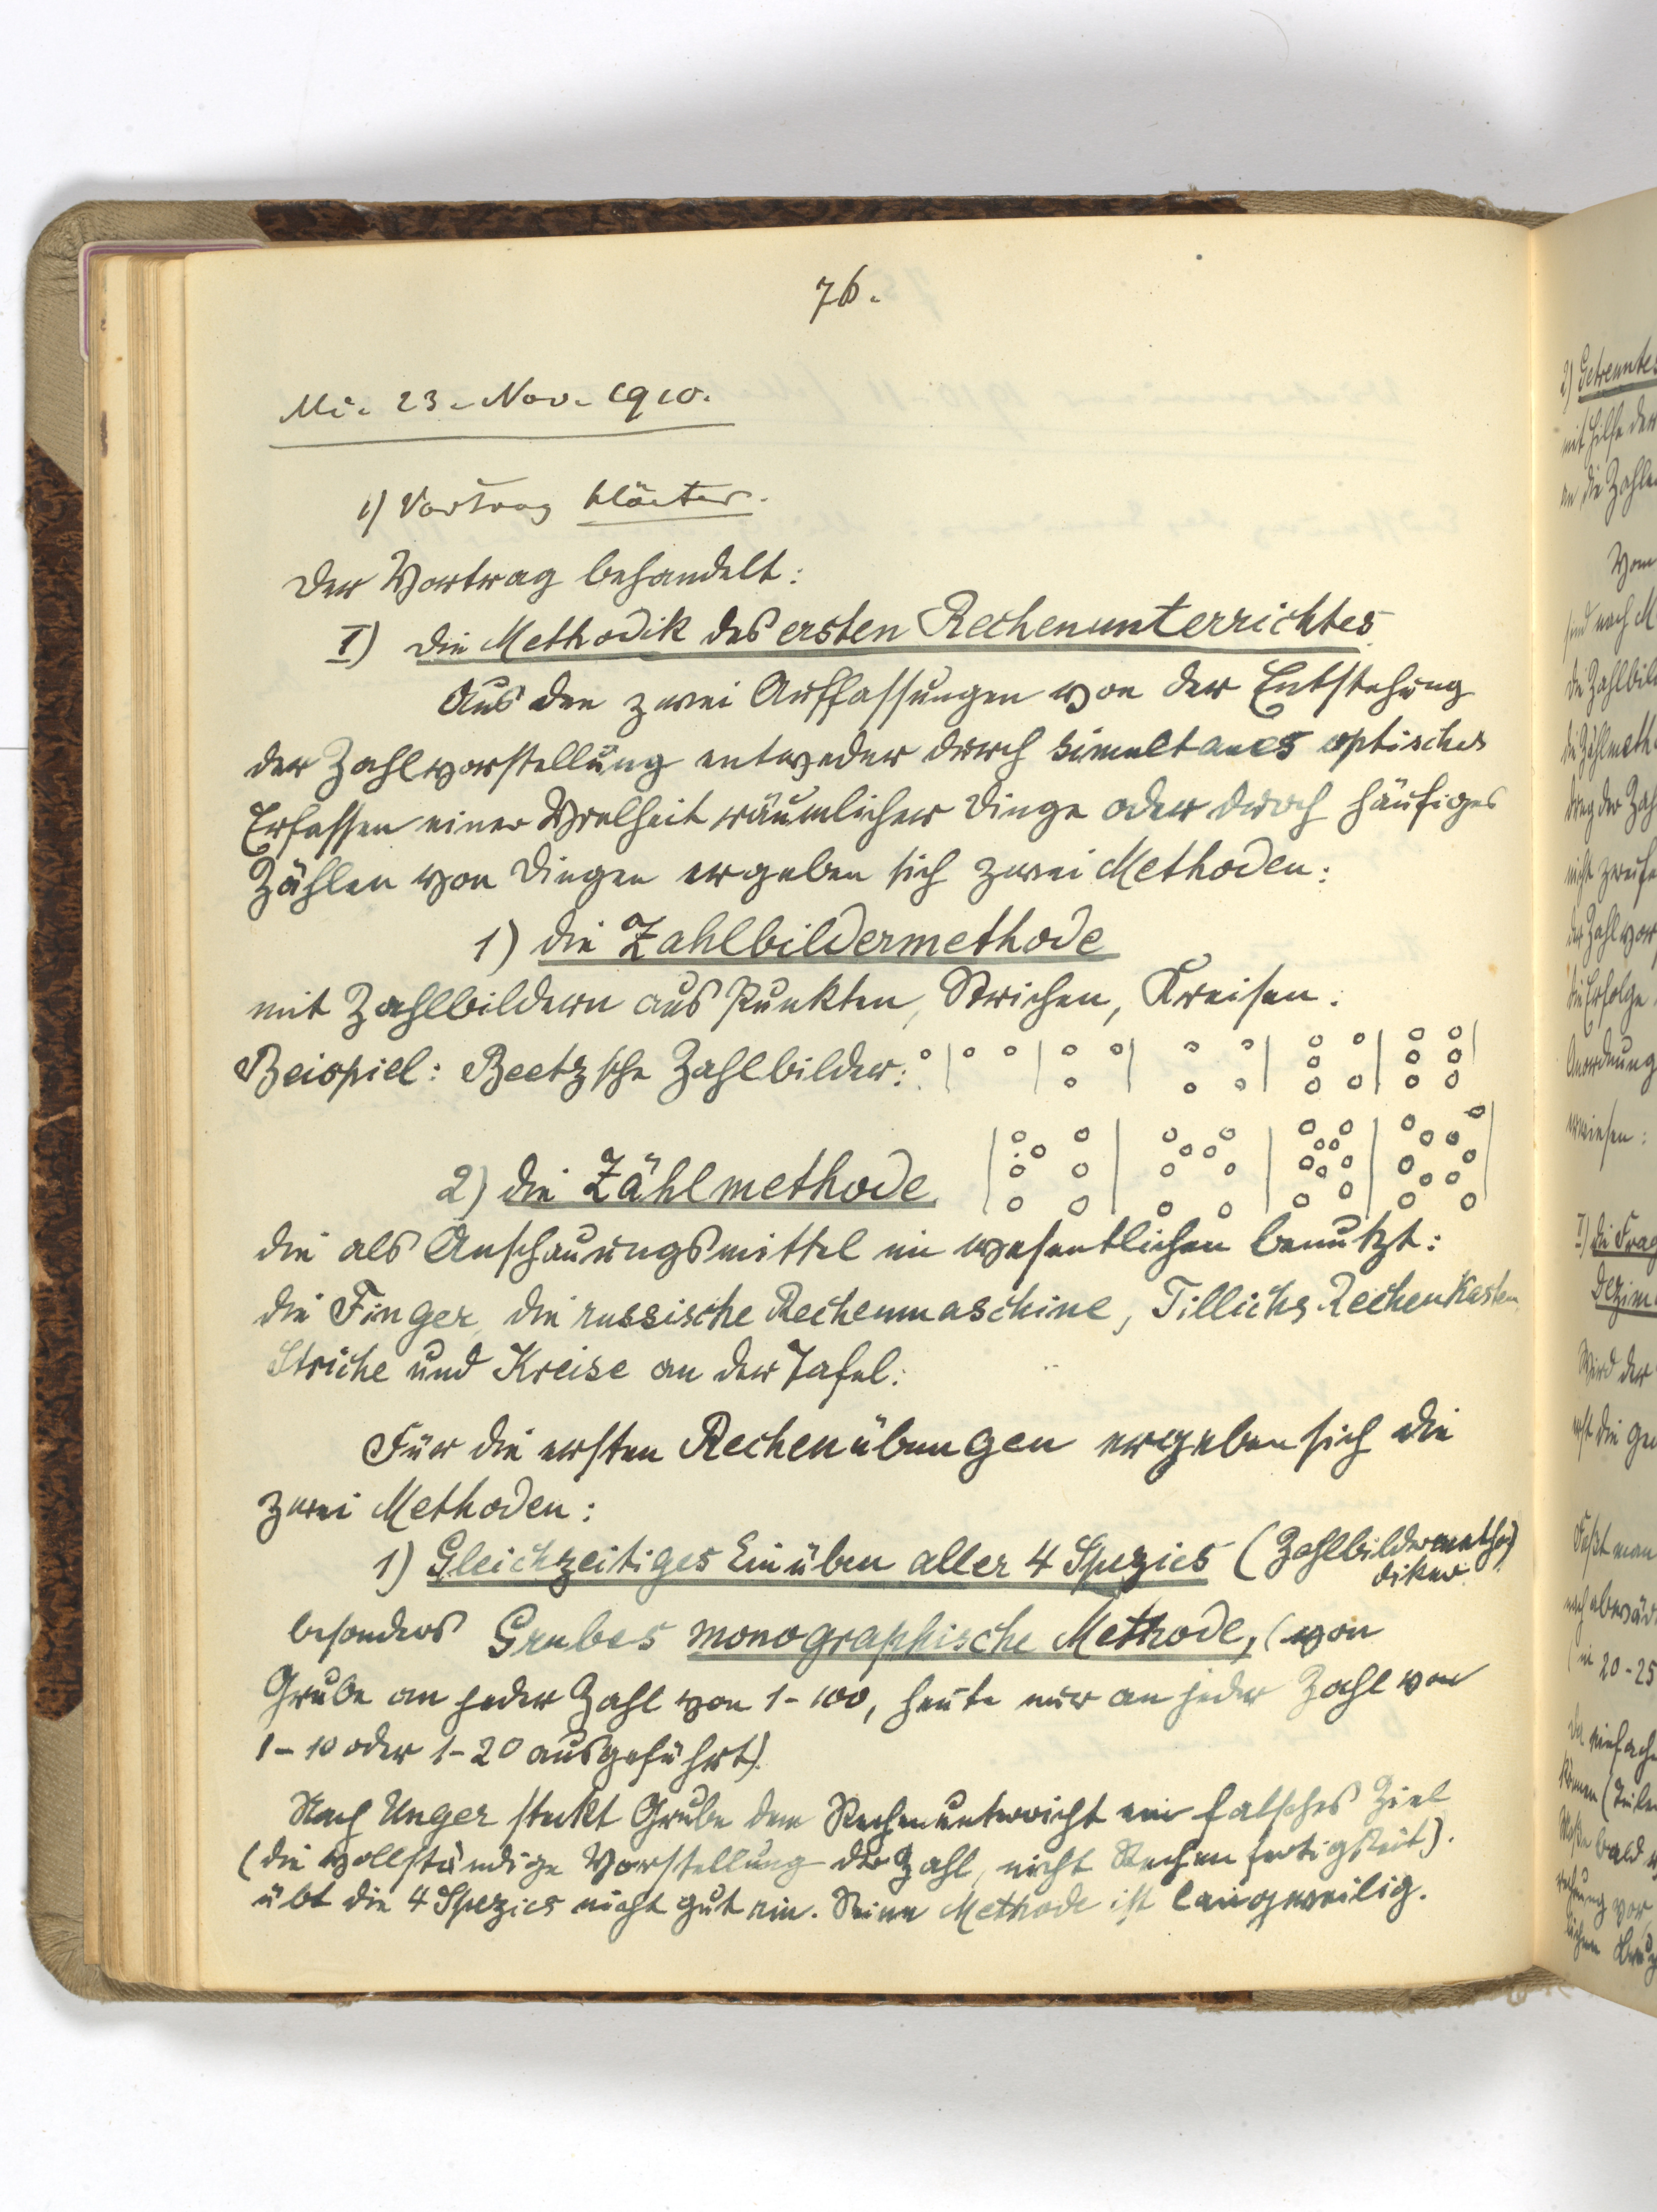 76.
Mi. 23. Nov. 1910.
1) Vortrag
Der Vortrag behandelt:
I) Die Methodik des ersten Rechenunterrichtes
Aus den zwei Auffassungen von der Entstehung
der Zahlvorstellung entweder durch simultanes optisches
Erfassen einer Vielheit räumlicher Dinge oder durch häufiges
Zählen von Dingen ergeben sich zwei Methoden:
1) die Zahlbildermethode
mit Zahlbildern aus Punkten, Strichen, Kreisen.
Beispiel: Beetzsche Zahlbilder:
2) die Zählmethode
die als Anschauungsmittel im wesentlichen benutzt:
die Finger, die russische Rechenmaschine, Tillichs Rechenkasten
Striche und Kreise an der Tafel.
Für die ersten Rechenübungen ergeben sich die
zwei Methoden:
1) Gleichzeitiges Einüben aller 4 Spezies (Zahlbildermetho-
diker)
besonders Grubes monographische Methode, (von
Grube an jeder Zahl von 1-100, heute nur an jeder Zahl von
1-10 oder 1-20 ausgeführt).
Nach Unger steckt Grube dem Rechenunterricht ein falsches Ziel
(die vollständige Vorstellung der Zahl, nicht Rechenfertigkeit).
übt die 4 Spezies nicht gut ein. Seine Methode ist langweilig.
2) Getrenntes
mit Hilfe der
an die Zahlen
Vom
sind nach M
die Zahlbil
die Zählmeth
nicht
der Zahlvor
die Erfolge
Anordnung
erwiesen:
Wird der
erst die
Faßt man
in 20-25
einfach
bald
vor